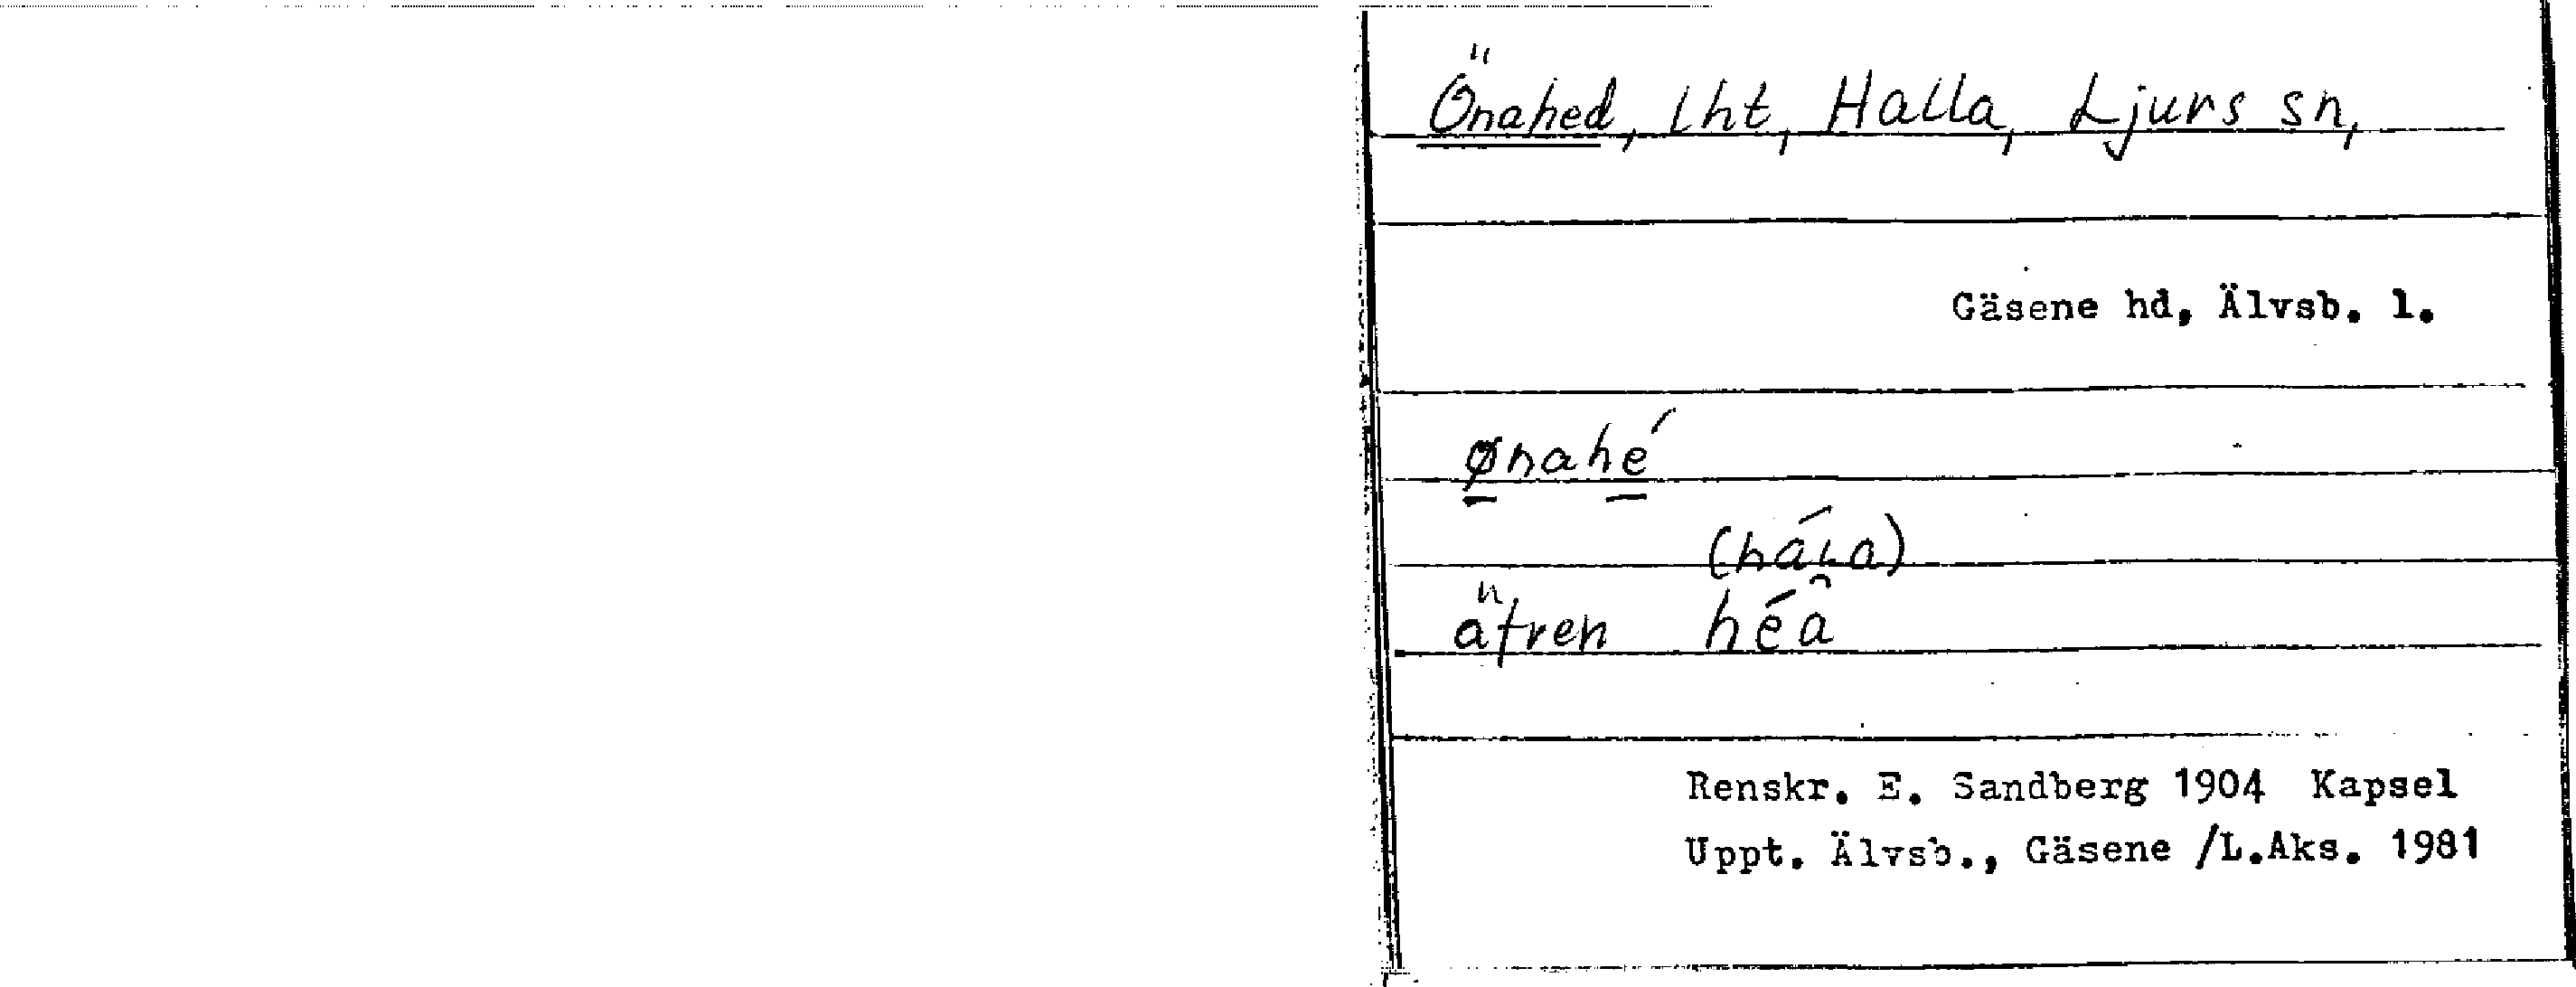 Önahed, lht, Halla, Ljurs sn,
Gäsene hd, Älvsb. l.
ø̲nahé̲
äfren héâ
Renskr. E. Sandberg 1904 Kapsel
Uppt. Älvsb., Gäsene /L.Aks. 1981